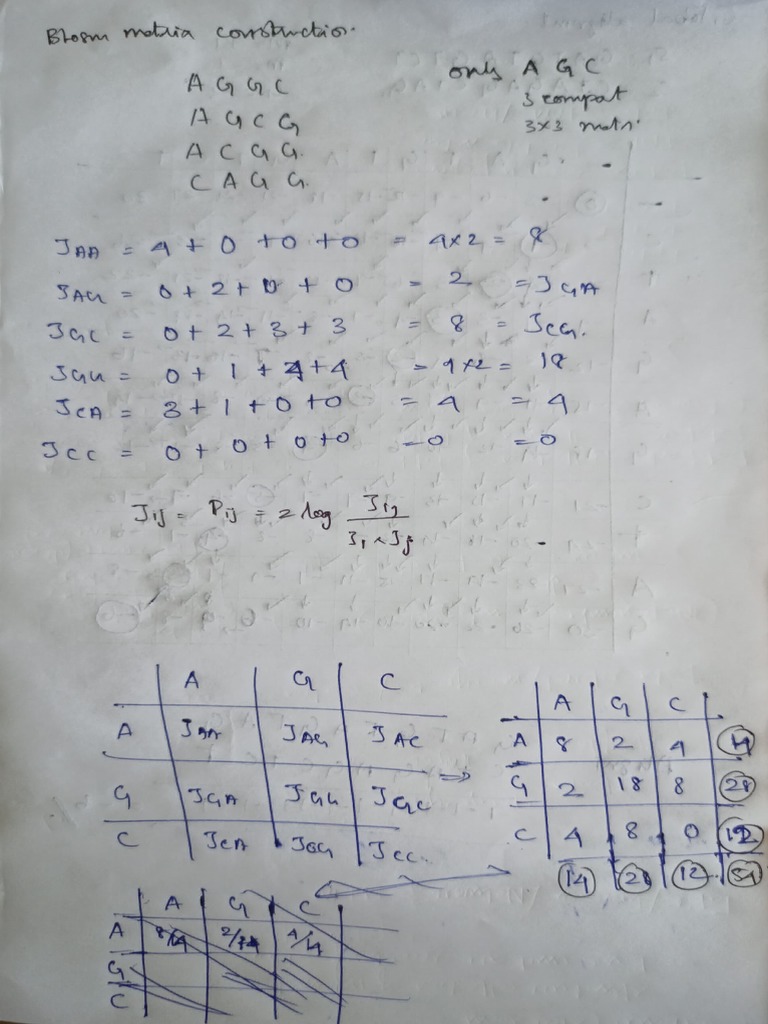 Blosm matrix construction.
A G G C
only A G C
A G C G
3 compat
A C G G.
3x3 matri.
C A G G.
JAA = 4 + 0 + 0 + 0 = 4x2 = 8
JAG = 0 + 2 + 0 + 0 = 2 = JGA
JGC = 0 + 2 + 3 + 3 = 8 = JCG.
JGG = 0 + 1 + 4 + 4 = 9x2 = 18
JCA = 3 + 1 + 0 + 0 = 4 = 4
JCC = 0 + 0 + 0 + 0 = 0 = 0
Jij = Pij = 2 log Jij
Ji x Jj
A G C
A JAA JAG JAC
G JGA JGG JGC
C JCA JCG JCC.
=>
A G C
A 8 2 4 14
G 2 18 8 28
C 4 8 0 12
14 28 12 54
A G C
A 8/14 4/14
G
C